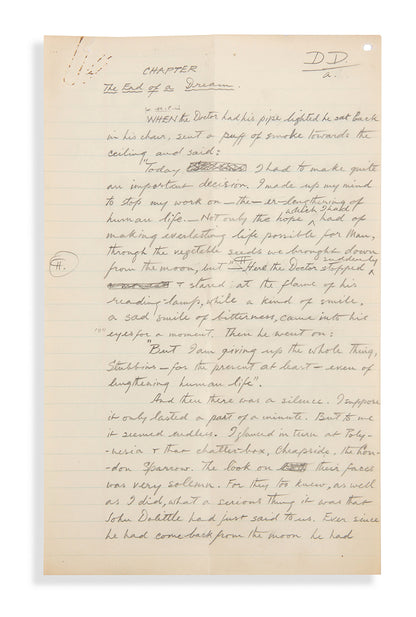 D.D.
a.
CHAPTER
The End of a Dream.
WHEN the Doctor had his pipe lighted he sat back
in his chair, sent a puff of smoke towards the
ceiling and said:
"Today I had to make quite
an important decision. I made up my mind
to stop my work on — the — er — lengthening of
human life. — Not only the hope which I had had of
making everlasting life possible for Man,
through the vegetable seeds we brought down
from the moon, but — Here the Doctor stopped suddenly
& stared at the flame of his
reading-lamp, while a kind of smile,
a sad smile of bitterness, came into his
eyes for a moment. Then he went on:
"But I am giving up the whole thing,
Stubbins — for the present at least — even of
lengthening human life".
And then there was a silence. I suppose
it only lasted a part of a minute. But to me
it seemed endless. I glanced in turn at Poly-
-nesia & that chatter-box, Cheapside, the Lon-
-don Sparrow. The look on their faces
was very solemn. For they too knew, as well
as I did, what a serious thing it was that
John Dolittle had just said to us. Ever since
he had come back from the moon he had